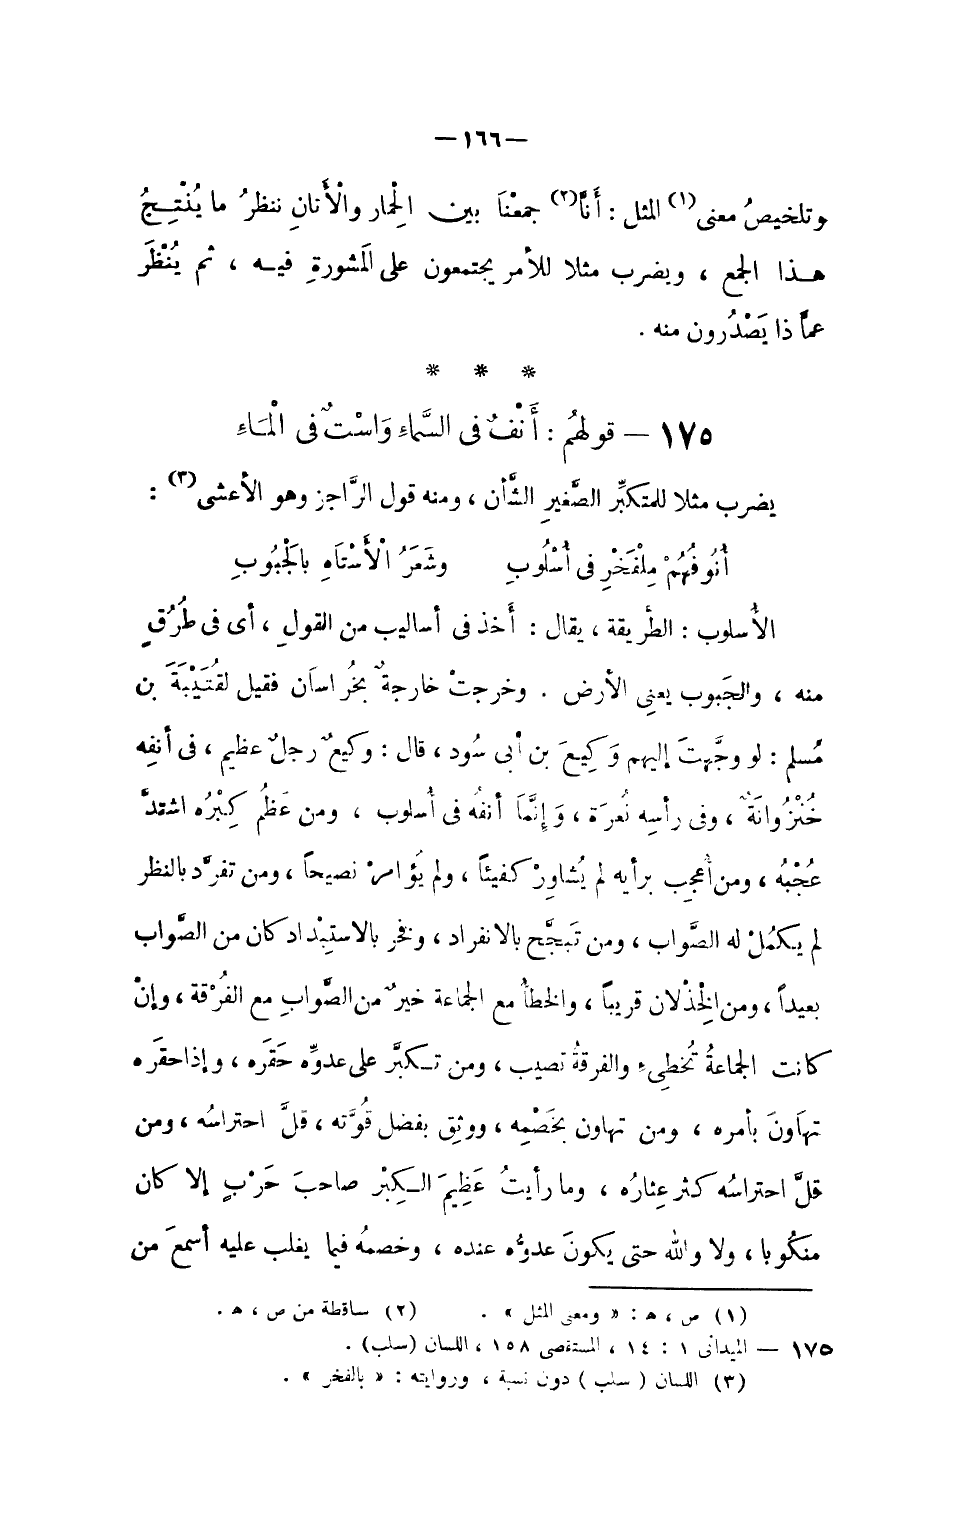 — ١٦٦ —
وتلخيصُ معنى(١) المثل : أَنَّا(٢) جمعْنَا بين الْحِمار والْأَتانِ ننظرُ ما يُنْتِجُ
هذا الجمع ، ويضرب مثلا للأمر يجتمعون على المَشورةِ فيه ، ثم يُنْظَر
عمَّا ذا يَصْدُرون منه .
* * *
١٧٥ — قولهُم : أَنْفٌ فى السَّماءِ وَاسْتٌ فى الْمَاءِ
يضرب مثلا للمتكبِّر الصَّغيرِ الشَّأن ، ومنه قول الرَّاجز وهو الأعشى(٣) :
أُنُوفُهُمْ مِلْفَخْرِ فى أُسْلُوبِ وشَعَرُ الْأَسْتَاهِ بالَجْبُوبِ
الأُسلوب : الطَّريقة ، يقال : أَخذ فى أساليب من القولِ ، أى فى طُرُقٍ
منه ، والجَبوب يعنِى الأرض . وخرجتْ خارجةٌ بخُراسَان فقيل لقُتَيْبَةَ بن
مُسلم : لو وجَّهتَ إليهم وَكِيعَ بن أبى سُود ، قال : وكيعٌ رجلٌ عظيم ، فى أنفِه
خُنْزُوانَةٌ ، وفى رأسِه نُعرَة ، وَإِنَّمَا أنفهُ فى أُسلوب ، ومن عَظُم كِبْرُه اشتدَّ
عُجْبُه ، ومن أُعجِب برأيه لم يُشاوِرْ كفيئاً ، ولم يُؤامرْ نصيحاً ، ومن تفرَّد بالنظر
لم يكمُلْ له الصَّواب ، ومن تَبجَّح بالانفراد ، وفخر بالاستِبْداد كان من الصَّواب
بعيداً ، ومن الخِذْلان قريباً ، والخطأُ مع الجماعة خيرٌ من الصَّوابِ مع الفُرْقة ، وإنْ
كانت الجماعةُ تُخطِىء والفرقةُ تصيب ، ومن تكبَّر على عدوِّه حَقَره ، وإذا حقَره
تهاَونَ بأمره ، ومن تهاون بخَصْمِه ، ووثِق بفضل قُوَّته ، قلَّ احتراسُه ، ومن
قلَّ احتراسُه كثر عِثارُه ، وما رأيتُ عَظِيمَ الكِبْر صاحبَ حَرْبٍ إلا كان
منكُوبا ، ولا والله حتى يكونَ عدوُّه عنده ، وخصمهُ فيما يغلب عليه أسمعَ من
(١) ص ، هـ : « ومعنى المثل » . (٢) ساقطة من ص ، هـ .
١٧٥ — الميدانى ١ : ١٤ ، المستقصى ١٥٨ ، اللسان (سلب) .
(٣) اللسان ( سلب ) دون نسبة ، وروايته : « بالفخر » .